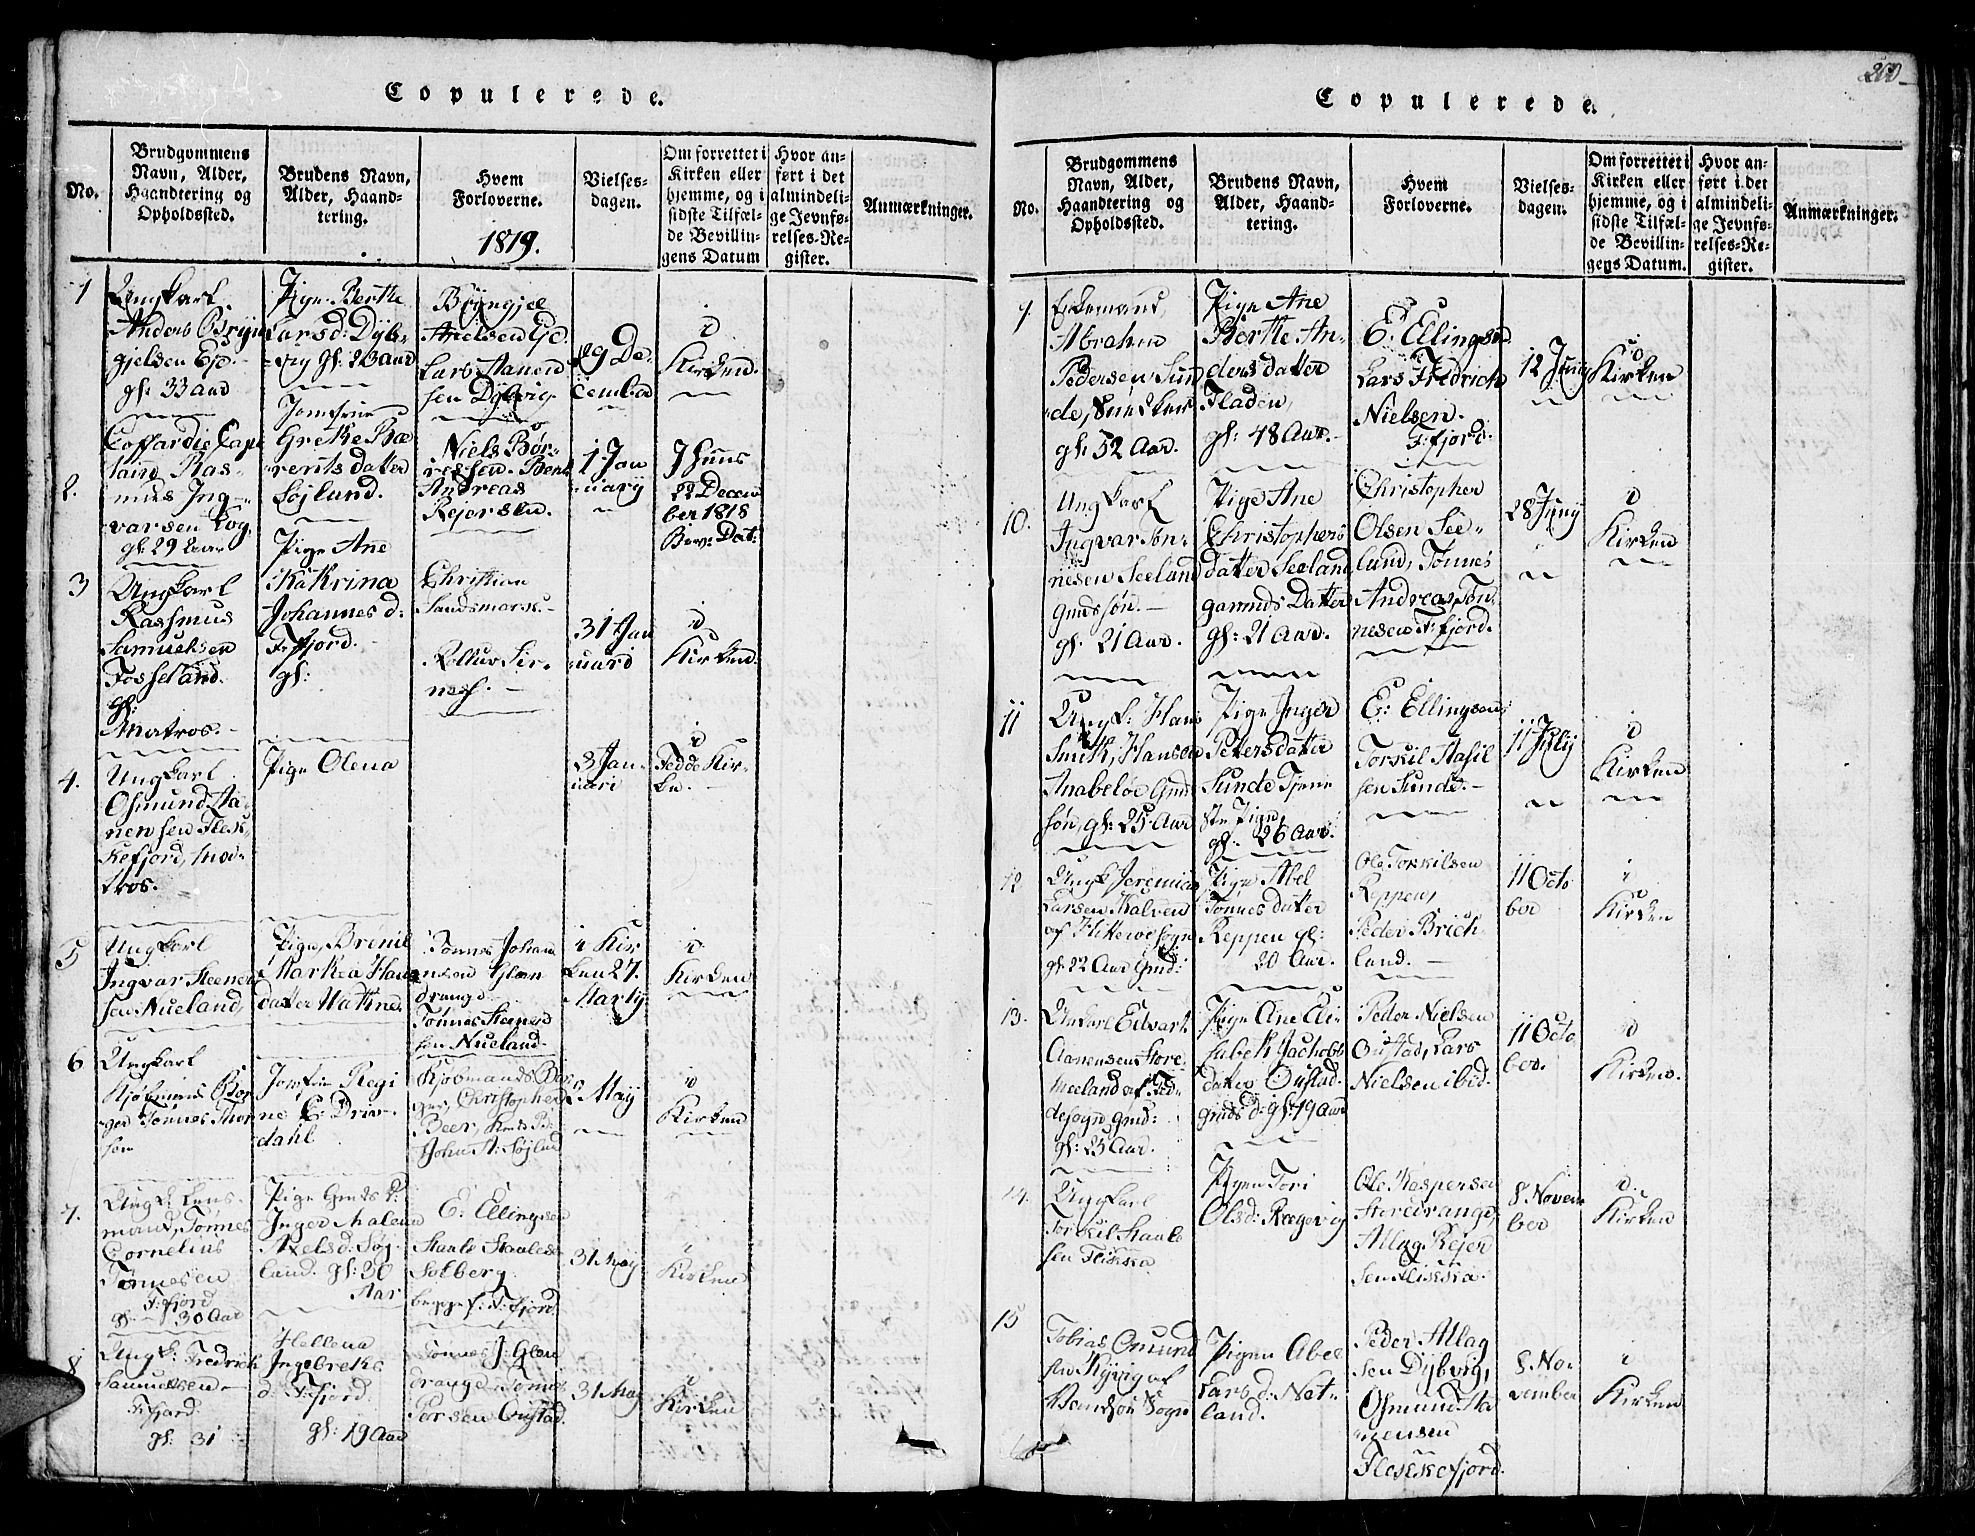 Copulerede.
No.
Brudgommens
Navn, Alder,
Haandtering og
Opholdssted.
Brudens Navn,
Alder, Haand-
tering.
Hvem
Forloverne.
1819.
Vielses-
dagen.
Om forrettet i
Kirken eller
hjemme, og i
sidste Tilfæl-
de Bevillin-
gens Datum
Hvor an-
ført i det
almindeli-
ge Jevnfø-
relses-Re-
gister.
Anmærkninger.
1
Ungkarl
Anders
gjelsen
gl: 33 Aar
Pige Berthe
Larsd: Dyb-
vig gl: 23 Aar
Lars Aanen
sen Dybvig
29 De-
cember
i
Kirken.
2.
Coffardie Capt
tain Ras-
mus Ing-
varsen
gl: 29 Aar
Jomfrue
Grethe Be
rents datter
Søjlund.
Niels Bør-
resen. Bent
Andreas
Rejersen.
1 Jan
uarij
J Huus
22 Decem
ber 1818
Bew: Dat:
3
Ungkarl
Rasmus
Samuelsen
Fosseland.
gl:
Matros.
Pige Ane
Kathrina
Johannes d:
F:fjord.
gl:
Christian
31 Jan
uari
i
Kirken.
4.
Ungkarl
Osmund Aa-
nensen Flek
kefjord, Ma-
tros.
Pige Olena
3 Jan-
uari
i
Fedde Kir-
ke.
5
Ungkarl
Ingvar Steener
sen Nueland,
Pige, Brönil
Marthea Hans
datter Hattnes
Tønnes Johan
nsen Glen
drange
Tønnes Steener
sen Nueland.
i Kir
ken 27.
Martij
i
Kirken
6
Ungkarl
Kjøbmand Bor
ger Tønnes Thor
sen
Jomfrue Regi
ne E: Drive-
dahl
Kjøbmand Bor
ger, Christopher
Beer,
John A: Søjlund
2 Maij
i
Kirken
7.
Ungk: Lens-
mand, Tønnes
Cornelius
Tønnesen
F:fjord
gl: 30 Aar
Pige Gmds d:
Inger Malena
Axelsd: Søj-
land. gl: 30
Aar
E: Ellingsen
Staale Staales:
Solberg
begge f: F:fjord
31 Maij
i
Kirken
8
Ungk: Fredrich
Samuelsen
F:fjord.
gl: 31
Hellena
Ingebreths
d: F:fjord.
gl: 19 Aar
Tønnes J: Glen
drange Tønnes
Torsen Oustad.
31 Maij
i
Kirken

200
Copulerede.
No.
Brudgommens
Navn, Alder,
Haandtering og
Opholdssted.
Brudens Navn,
Alder, Haand-
tering.
Hvem
Forloverne.
Vielses-
dagen.
Om forrettet i
Kirken eller
hjemme, og i
sidste Tilfæl-
de Bevillin-
gens Datum.
Hvor an-
ført i det
almindeli-
ge Jevnfø-
relses-Re-
gister.
Anmærkninger.
9.
Enkemand,
Abraham
Pedersen Sun
de, Snedker
gl: 52 Aar.
Pige Ane
Berthe An-
ders datter
Fladen,
gl: 48 Aar.
E: Ellingsen
Lars Fredrich
Nielsen.
F:fjord.
12 Junij
i
Kirken
10.
Ungkarl
Ingvar Tøn-
nesen Seeland
Gmdssøn.
gl: 21 Aar.
Pige Ane
Christophers
datter Seeland
gamnds Datter
gl: 21 Aar.
Christopher
Olsen See-
land, Tønnes
Andreas Tøn-
nesen F:fjord.
28 Junij
i
Kirken
11
Ungk: Hans
Smith, Hansen
Anabeløe Gmds
søn, gl: 25 Aar
Pige Inger
Petersdatter
Sunde Tjene
ste Pige,
gl: 26 Aar.
E: Ellingsen,
Torkil Aasil
sen Sunde.
11 Julij
i
Kirken
12
Ungk Jeremias
Larsen Kalven
af Hitteroe Sogn
gl: 22 Aar Gmd:
Pige Abel
Tønnes datter
Reppen gl:
20 Aar.
Ole Torkilsen
Reppen,
Peder Brich-
land.
11 Octo
ber
i
Kirken
13.
Unkarl Edvart
Aanensen Store
Meeland af Fed-
desogn, gmd:
gl: 25 Aar.
Pige Ane Eli-
sabeth Jachobs
datter Oustad.
gmds d: gl: 19 Aar
Peder Nielsen
Oustad, Lars
Nielsen ibid.
11 Octo
ber.
i
Kirken.
14.
Ungkarl
Torkil Staale
sen Flikka
Pigen Tori
Olsd: Regevig
Ole Kaspersen
Storedrange,
Allag Rejer
sen Flikka.
8 Novem
ber
i.
Kirken
15
Tobias Omund
sen Kyvig af
Vandsøe Sogn
Pigen Abel
Lars d: Net-
land.
Peder Allag
sen Dybvig,
Osmund Aa
nensen
Flekkefjord.
8 No-
vember
i
Kirken